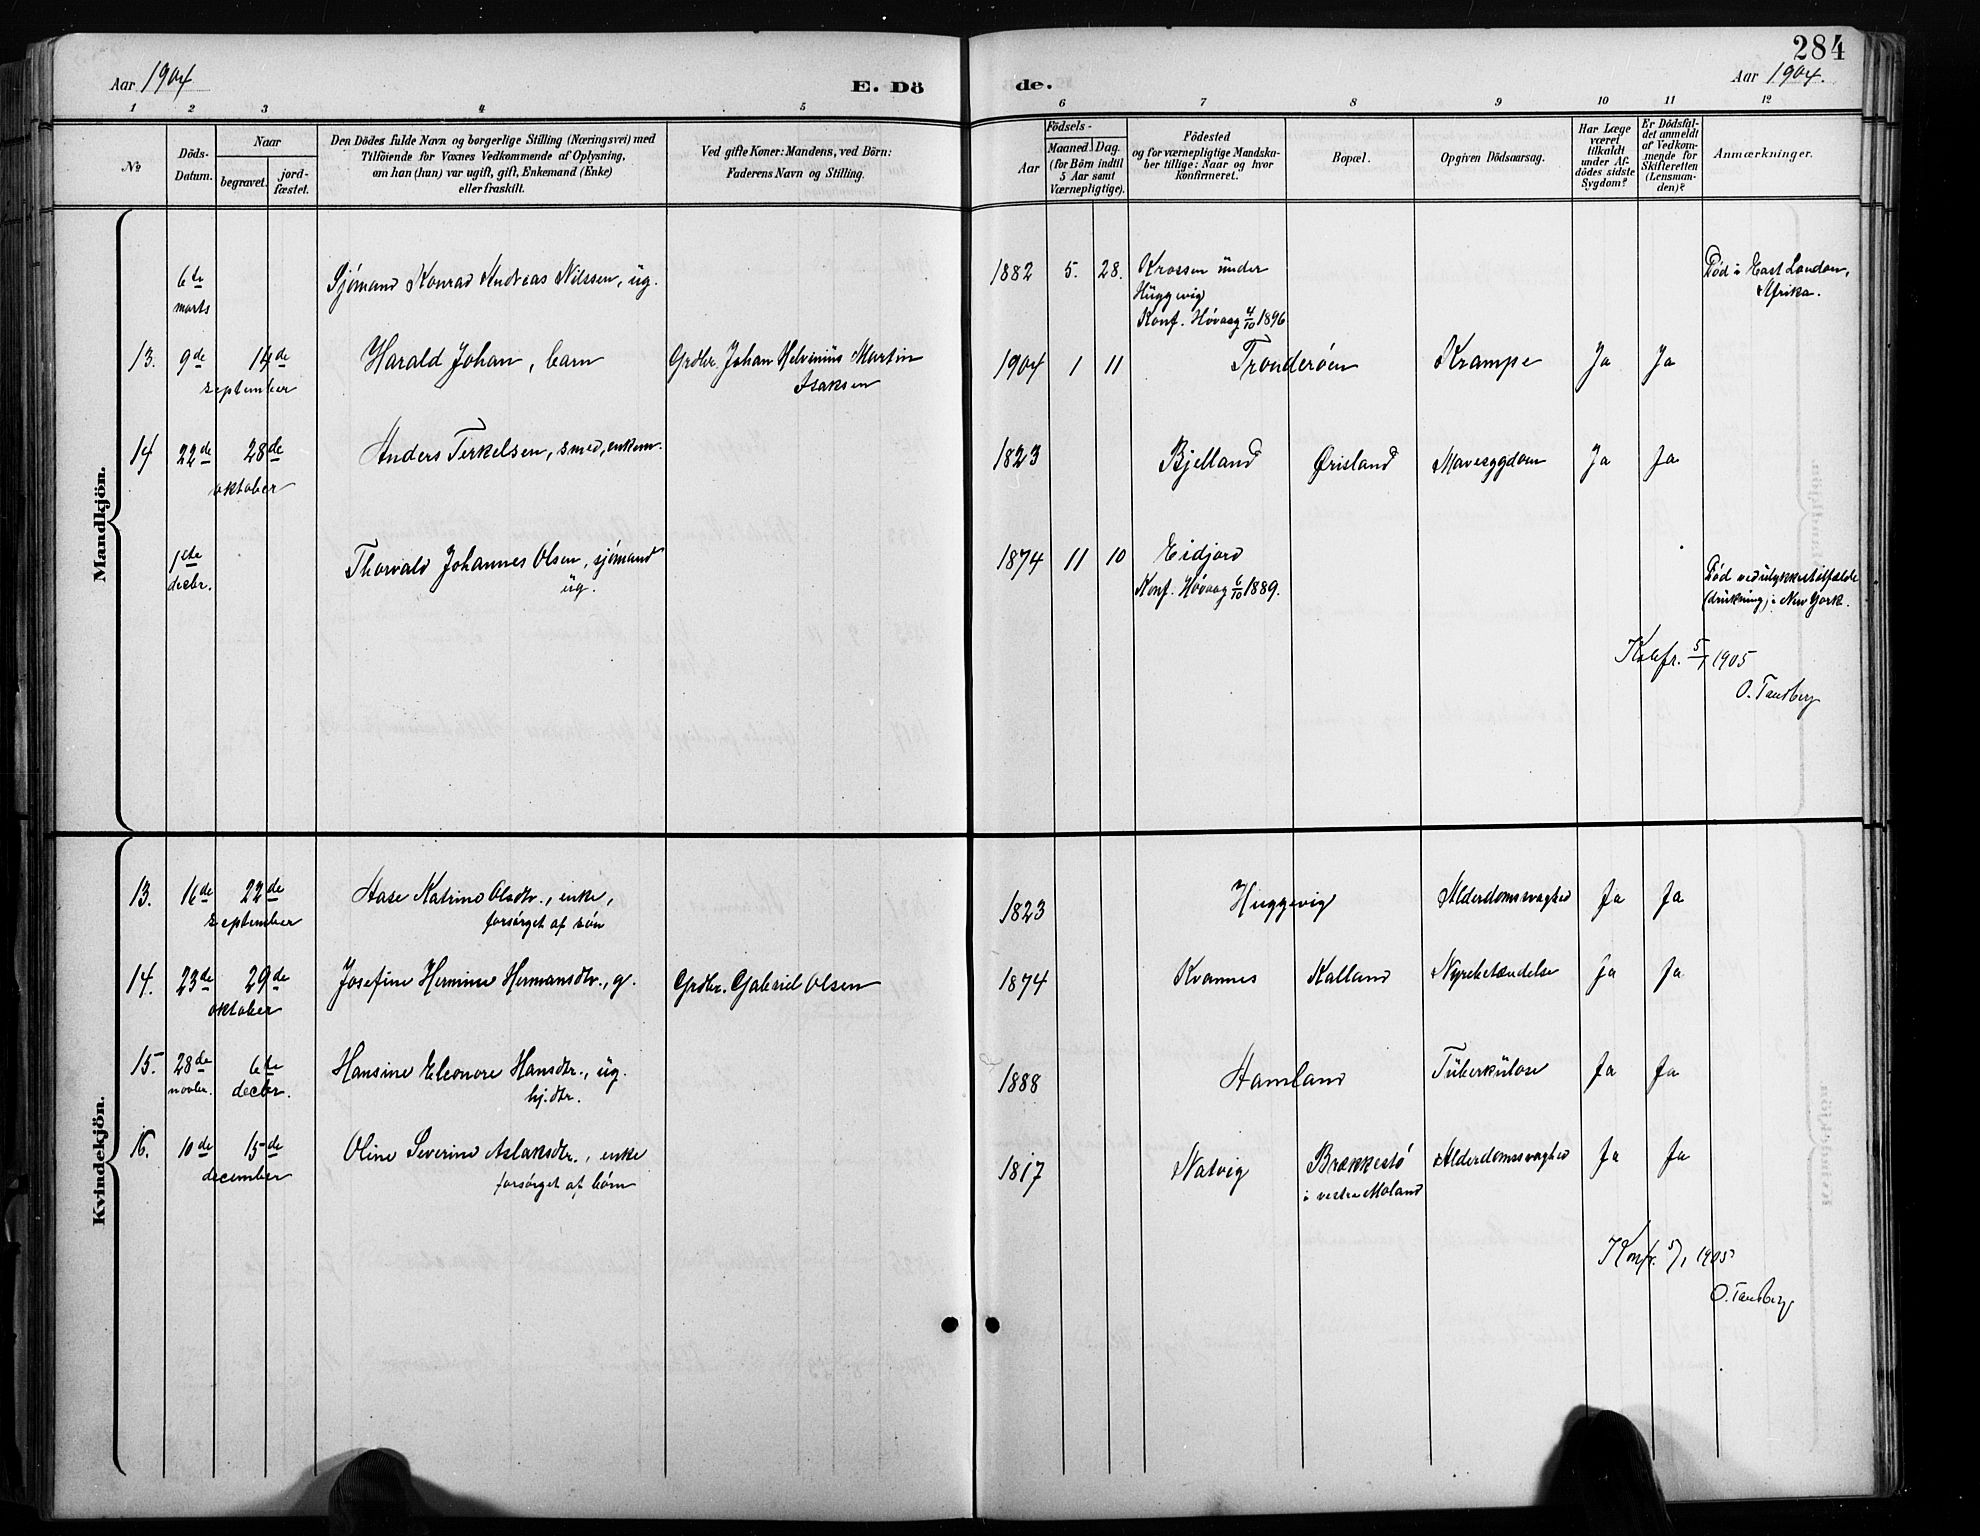 284
Aar 1904
E. Dö
de.
Aar 1904.
1 2 3 4 5 6 7 8 9 10 11 12
No
Döds-Datum.
Naar
begravet.
jord-fæstet.
Den Dödes fulde Navn og borgerlige Stilling (Næringsvei) med
Tilföiende for Voxnes Vedkommende af Oplysning,
om han (hun) var ugift, gift, Enkemand (Enke)
eller fraskilt.
Ved gifte Koner: Mandens, ved Börn:
Faderens Navn og Stilling.
Födsels-
Aar
Maaned. Dag.
(for Börn indtil
5 Aar samt
Værnepligtige).
Födested
og for værnepligtige Mandska-
ber tillige: Naar og hvor
konfirmeret.
Bopæl.
Opgiven Dödsaarsag.
Har Læge
været
tilkaldt
under Af-
dödes sidste
Sygdom?
Er Dödsfal-
det anmeldt
af Vedkom-
mende for
Skifteretten
(Lensman-
den)?
Anmærkninger.
Mandkjön.
6te marts Sjömand Konrad Andreas Nilssen, ug. 1882 5. 28. Krossen under
Huggevig
Konf. Høvaag 4/10 1896
Död i East London,
Afrika.
13. 9de 14de Harald Johan, barn Grdbr. Johan Helvinius Martin 1904 1 11 Tronderöen Krampe Ja Ja
september Isaksen
14 22de 28de Anders Terkelsen, smed, enkem. 1823 Bjelland Ørisland Mavesygdom Ja Ja
oktober
1ste decbr. Thorvald Johannes Olsen, sjömand 1874 11 10 Eidjord
ug. Konf. Høvaag 6/10 1889.
Död ved ulykkestilfælde
(drukning) i New York.
Konfr. 5/1 1905
O. Tandberg
Kvindekjön.
13. 16de 22de Aase Katrine Olsdtr., enke, 1823 Huggevig Alderdomssvaghed Ja Ja
september forsörget af sön
14. 23de 29de Josefine Hermine Hermansdtr., g. Grdbr. Gabriel Olsen 1874 Kvannes Kalland Nyrebetændelse Ja Ja
oktober
15. 28de 6te Hansine Eleonore Hansdtr., ug. 1888 Hamland Tuberkulose Ja Ja
novbr. decbr. hj. dtr.
16. 10de 15de Oline Severine Aslaksdtr., enke 1817 Natvig Brækkestö Alderdomssvaghed Ja Ja
december forsörget af börn i vestre Moland
Konfr. 5/1 1905
O. Tandberg